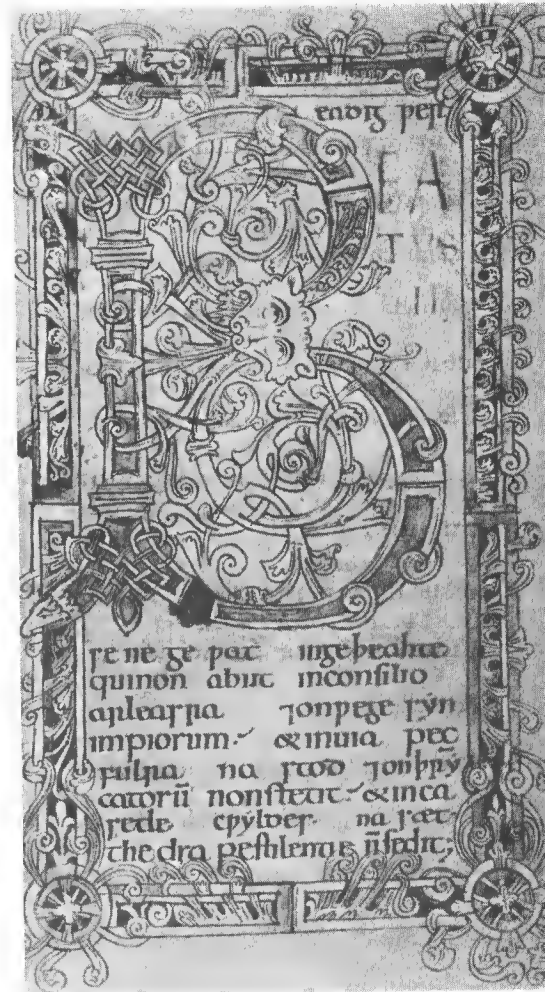 eadig wer
B
EA
TUS
UIR
se ne ge wat ingeþeahte
quinon abiit inconsilio
arleasra ⁊onwege syn
impiorum. &inuia pec
fulra na stod ⁊onþrȳ
catorū nonstetit. &inca
setle cwyldes na sæt
thedra pestilentie ñsedit;